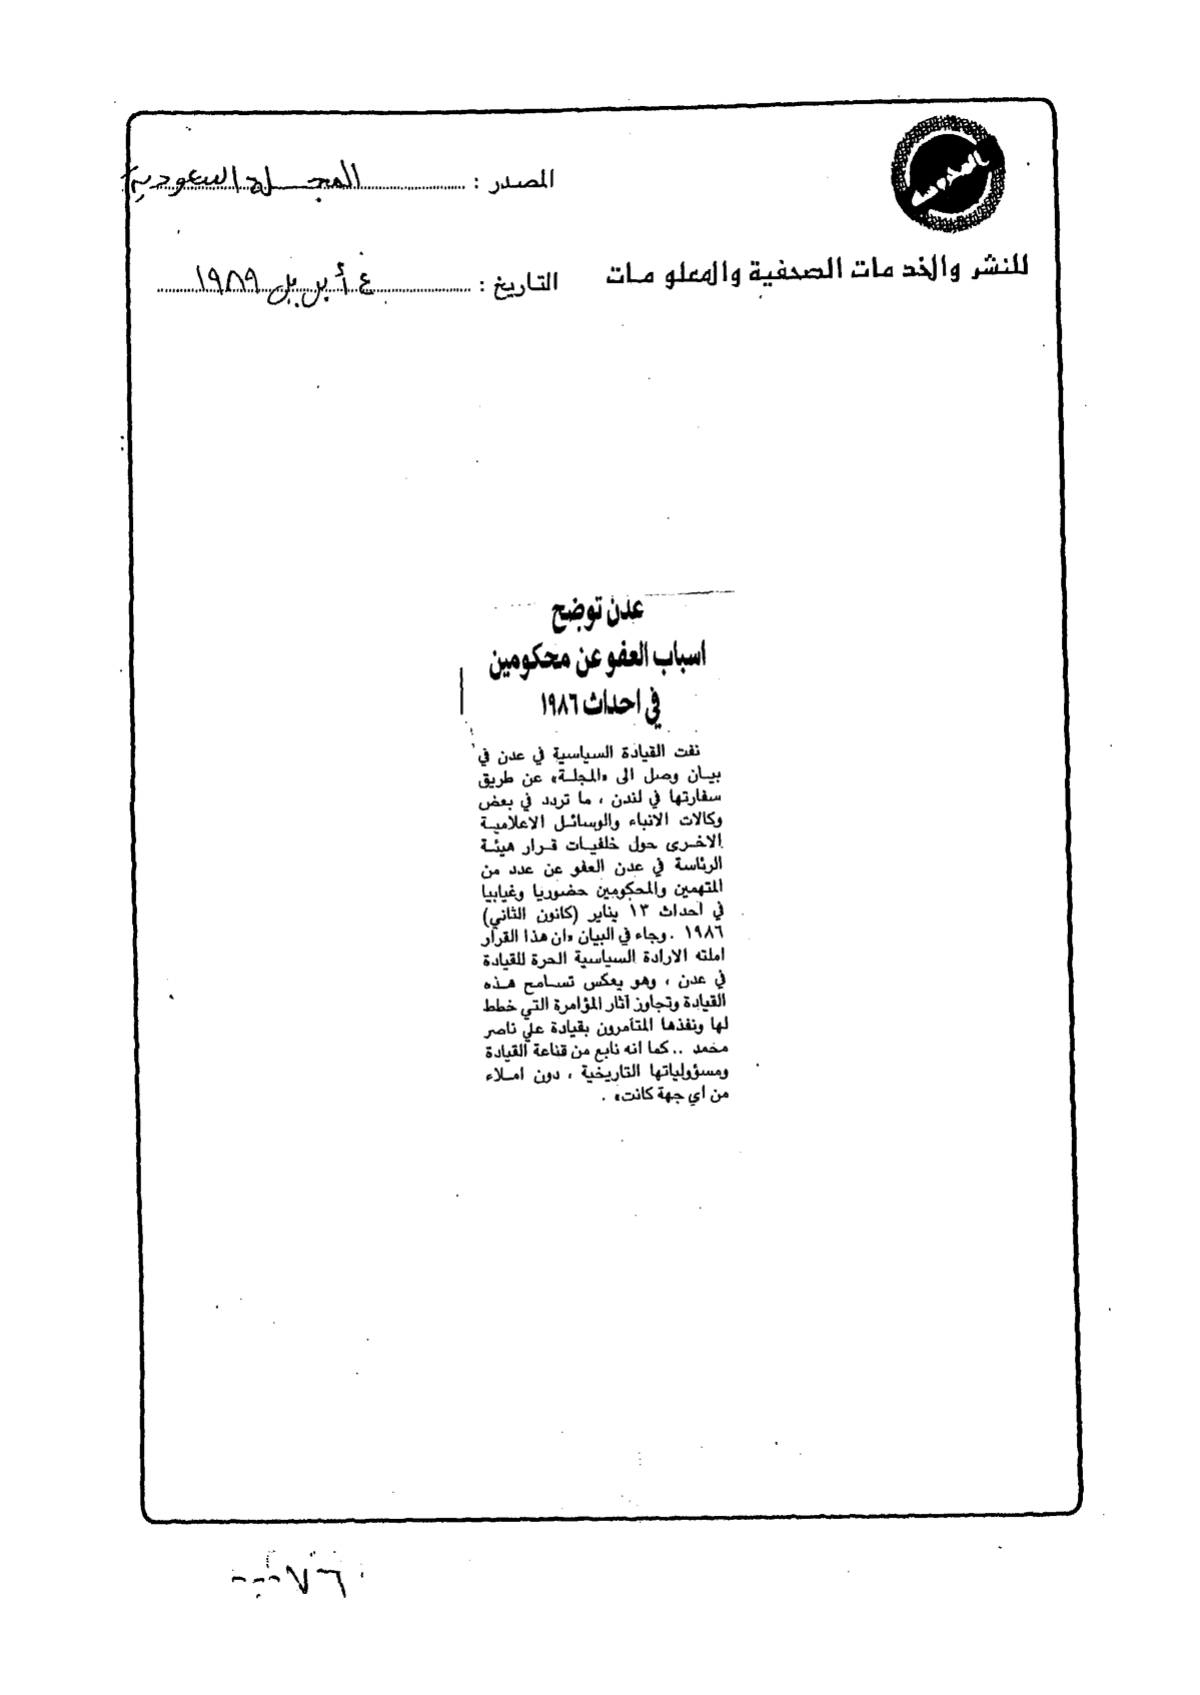 المصدر : المجلة السعودية
للنشر والخدمات الصحفية والمعلومات
التاريخ : ٤ أبريل ١٩٨٩
عدن توضح
اسباب العفو عن محكومين
في احداث ١٩٨٦
نفت القيادة السياسية في عدن في
بيان وصل الى «المجلة» عن طريق
سفارتها في لندن ، ما تردد في بعض
وكالات الانباء والوسائل الاعلامية
الاخرى حول خلفيات قرار هيئة
الرئاسة في عدن العفو عن عدد من
المتهمين والمحكومين حضوريا وغيابيا
في احداث ١٣ يناير (كانون الثاني)
١٩٨٦ . وجاء في البيان «ان هذا القرار
املته الارادة السياسية الحرة للقيادة
في عدن ، وهو يعكس تسامح هذه
القيادة وتجاوز آثار المؤامرة التي خطط
لها ونفذها المتآمرون بقيادة علي ناصر
محمد .. كما انه نابع من قناعة القيادة
ومسؤولياتها التاريخية ، دون املاء
من اي جهة كانت» .